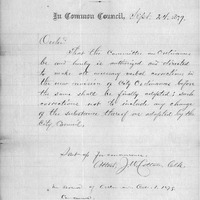 In Common Council, Sept. 24, 1879.
Orders
That the Committee on Ordinances
be and hereby is authorized and directed
to make all necessary verbal corrections in
the new revision of City Ordinances before
the same shall be finally adopted; such
corrections not to include any change
of the substance thereof as adopted by the
City Council.
Sent up for concurrence.
Clk.
In Board of Oct. 1879.
Concurred.